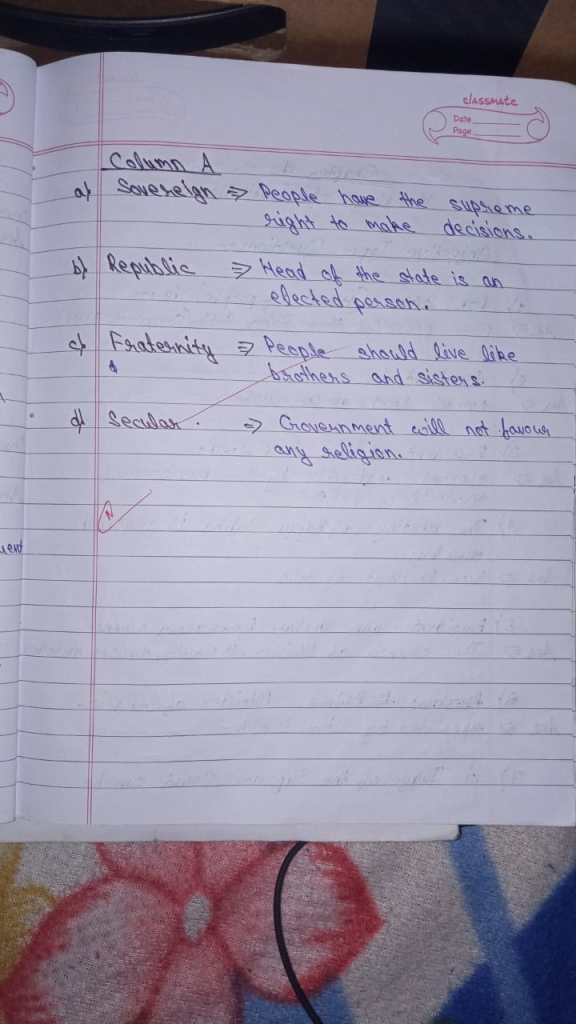 classmate
Date
Page
Column A
a) Sovereign ⇒ People have the supreme
right to make decisions.
b) Republic ⇒ Head of the state is an
elected person.
c) Fraternity ⇒ People should live like
brothers and sisters.
d) Secular. ⇒ Government will not favour
any religion.
N